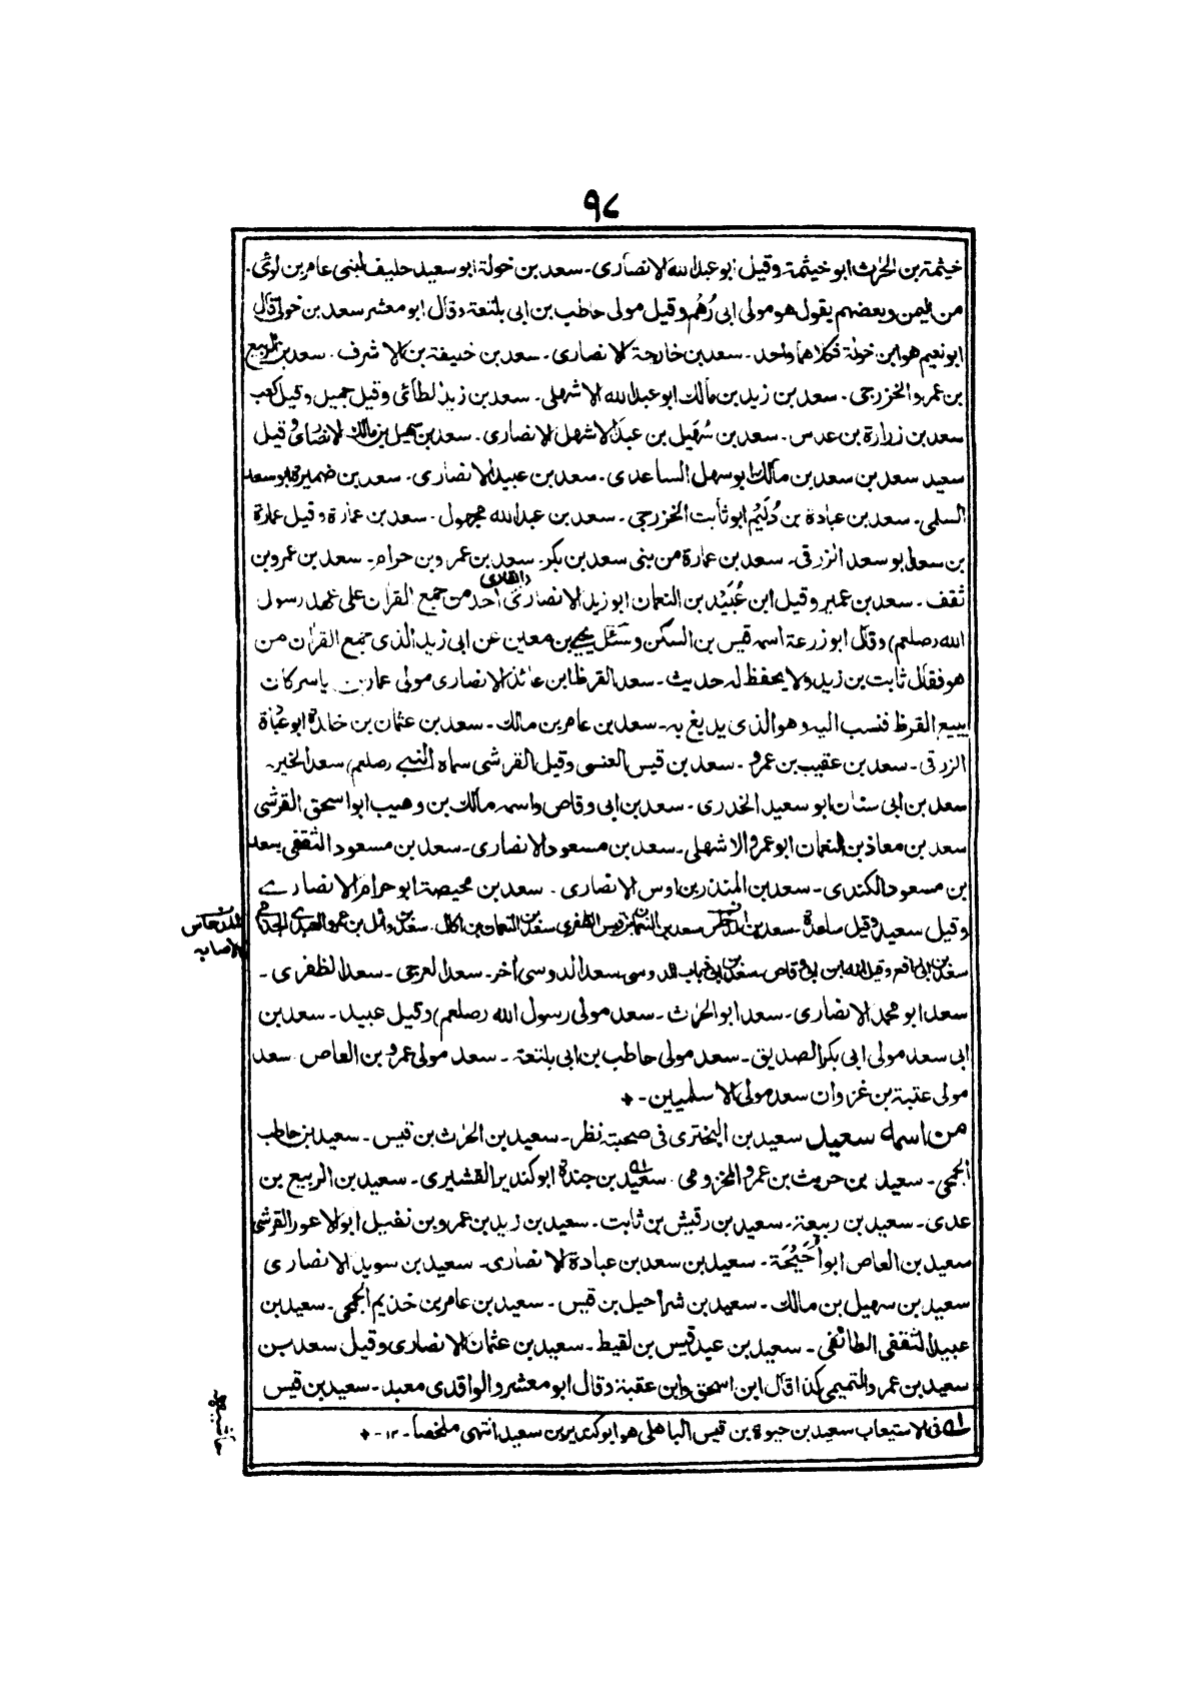 ٩٨
خیثمة بن الحٰرث ابو خیثمة وقیل ابو عبد الله الانصاری۔ سعد بن خولة ابو سعید حلیف لبنی عامر بن لوئی۔
من الیمن وبعضهم یقول هو مولی ابی رُهُم وقیل مولی حاطب بن ابی بلتعة وقال ابو معشر سعد بن خولی قال
ابو نعیم هو ابن خولة فکلاهما واحد۔ سعد بن خارجة الانصاری۔ سعد بن خیفة بن الاشرف۔ سعد بن الربیع
بن عمرو الخزرجی۔ سعد بن زید بن مالك ابو عبد الله الاشهلی۔ سعد بن زید الطائی وقیل جمیل وقیل کعب
سعد بن زرارة بن عدس۔ سعد بن سُهَیل بن عبد الاشهل الانصاری۔ سعد بن سهیل بن مالك الانصاری وقیل
سعید سعد بن سعد بن مالك ابو سهل الساعدی۔ سعد بن عبید الانصاری۔ سعد بن ضمیرة ابو سعد
السلمی۔ سعد بن عبادة بن دُلَیُم ابو ثابت الخزرجی۔ سعد بن عبد الله مجهول۔ سعد بن عمارة وقیل عمارة
بن سعد ابو سعد الزرقی۔ سعد بن عمارة من بنی سعد بن بکر۔ سعد بن عمرو بن حرام۔ سعد بن عمرو بن
ثقف۔ سعد بن عمیر وقیل ابن عُبَیُد بن النعمان ابو زید الانصاری (القاری) احد من جمع القراٰن علی عهد رسول
الله (صلعم) وقال ابو زرعة اسمه قیس بن السکن وسئل یحیی بن معین عن ابی زید الذی جمع القراٰن من
هو فقال ثابت بن زید ولا یحفظ له حدیث۔ سعد القرظ ابن عائذ الانصاری مولی عمار بن یاسر کان
یبیع القرظ فنسب الیه وهو الذی یدیغ به۔ سعد بن عامر بن مالك۔ سعد بن عثمان بن خالدة ابو عبادة
الزرقی۔ سعد بن عقیب بن عمرو۔ سعد بن قیس العنسی وقیل القرشی سماه النبی (صلعم) سعد الخیر۔
سعد بن ابی سنان ابو سعید الخدری۔ سعد بن ابی وقاص واسمه مالك بن وهیب ابو اسحق القرشی
سعد بن معاذ بن النعمان ابو عمرو الاشهلی۔ سعد بن مسعود الانصاری۔ سعد بن مسعود الثقفی سعد
بن مسعود الکندی۔ سعد بن المنذر بن اوس الانصاری۔ سعد بن محیصة ابو حرام الانصاری
وقیل سعید وقیل ساعدة۔ سعد بن المدحاس سعد بن النعمان بن قیس الظفری سعد بن النعمان بن اکال۔ سعد بن وائل بن عمرو العبدی الجذامی
سعد بن ابی رافع وقیل انه ابن ابی وقاص سعد بن ابی ذباب الدوسی سعد الدوسی اٰخر۔ سعد العرجی۔ سعد الظفری۔
سعد ابو محمد الانصاری۔ سعد ابو الحٰرث۔ سعد مولی رسول الله (صلعم) وقیل عبید۔ سعد بن
ابی سعد مولی ابی بکر الصدیق۔ سعد مولی حاطب بن ابی بلتعة۔ سعد مولی عمرو بن العاص سعد
مولی عتبة بن غزوان سعد مولی الاسلمیین۔
من اسمه سعید سعید بن البختری فی صحبته نظر۔ سعید بن الحٰرث بن قیس۔ سعید بن حاطب
الجمحی۔ سعید بن حریث بن عمرو المخزومی۔ سعید بن جندة ابو کندیر القشیری۔ سعید بن الربیع بن
عدی۔ سعید بن ربیعة۔ سعید بن رقیش بن ثابت۔ سعید بن زید بن عمرو بن نفیل ابو الاعور القرشی
سعید بن العاص ابو اُحَیُحَة۔ سعید بن سعد بن عبادة الانصاری۔ سعید بن سوید الانصاری
سعید بن سهیل بن مالك۔ سعید بن شراحیل بن قیس۔ سعید بن عامر بن خذیم الجمحی۔ سعید بن
عبید الثقفی الطائفی۔ سعید بن عبد قیس بن لقیط۔ سعید بن عثمان الانصاری وقیل سعد بن
سعید بن عمرو التمیمی کذا قال ابن اسحق وابن عقبة وقال ابو معشر والواقدی معبد۔ سعید بن قیس
فی الاستیعاب سعید بن حیوة بن قیس الباهلی هو ابو کندیر بن سعید انتهی ملخصا۔ ١٢۔
الاصابه
حاشیه